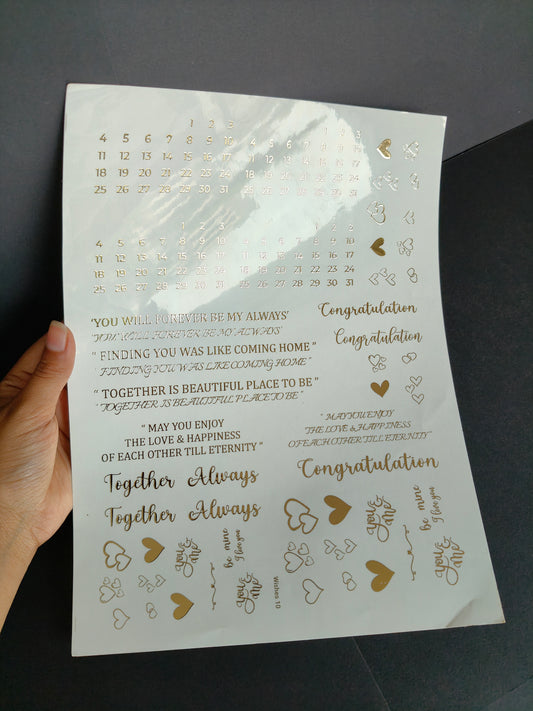 1 2 3 1 2 3
4 5 6 7 8 9 10 4 5 6 7 8 9 10
11 12 13 14 15 16 17 11 12 13 14 15 16 17
18 19 20 21 22 23 24 18 19 20 21 22 23 24
25 26 27 28 29 30 31 25 26 27 28 29 30 31
1 2 3 1 2 3
4 5 6 7 8 9 10 4 5 6 7 8 9 10
11 12 13 14 15 16 17 11 12 13 14 15 16 17
18 19 20 21 22 23 24 18 19 20 21 22 23 24
25 26 27 28 29 30 31 25 26 27 28 29 30 31
"YOU WILL FOREVER BE MY ALWAYS"
"YOU WILL FOREVER BE MY ALWAYS"
" FINDING YOU WAS LIKE COMING HOME "
" FINDING YOU WAS LIKE COMING HOME "
" TOGETHER IS BEAUTIFUL PLACE TO BE "
" TOGETHER IS BEAUTIFUL PLACE TO BE "
Congratulation
Congratulation
" MAY YOU ENJOY
THE LOVE & HAPPINESS
OF EACH OTHER TILL ETERNITY "
" MAY YOU ENJOY
THE LOVE & HAPPINESS
OF EACH OTHER TILL ETERNITY "
Together Always
Together Always
Congratulation
You &
me
be mine
I love you
You &
me
Wishes 10
You &
me
be mine
I love you
You &
me